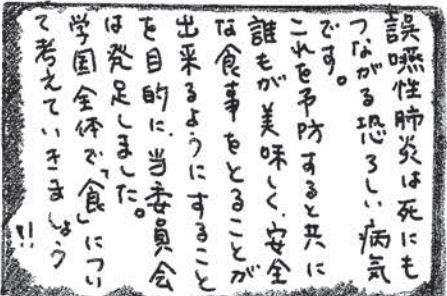 誤嚥性肺炎は死にも
つながる恐ろしい病気
です。
これを予防すると共に
誰もが美味しく、安全
な食事をとることが
出来るようにすること
を目的に、当委員会
は発足しました。
学国全体で「食」につい
て考えていきましょう
!!